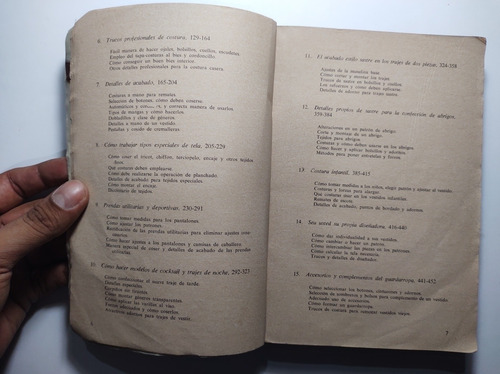 6. Trucos profesionales de costura, 129-164
Fácil manera de hacer ojales, bolsillos, cuellos,
Empleo del tapa-costuras al bies y cordoncillo.
Cómo conseguir un buen bies interior.
Otros detalles profesionales para la costura casera.
7. Detalles de acabado, 165-204
Costuras a mano para
Selección de botones, cómo deben coserse.
Automáticos y correcta manera de usarlos
Tipos de mangas y cómo hacerlos.
Dobladillos y clase de géneros.
Detalles a mano de un vestido.
Puntadas y cosido de cremalleras.
8. Cómo trabajar tipos especiales de tela, 205-229
Cómo coser el tricot, chiffon, terciopelo, encaje y otros tejidos
finos.
Qué costuras deben emplearse.
Cómo debe realizarse la operación de planchado.
Detalles de acabado para tejidos especiales.
Cómo montar el encaje.
Diccionario de tejidos.
9. Prendas utilitarias y deportivas, 230-291
Cómo tomar medidas para los pantalones.
Cómo ajustar los patrones.
Rectificación de las prendas utilitarias para eliminar ajustes
Cómo hacer ajustes a los pantalones y camisas de caballero.
Manera especial de coser y detalles de acabado de las prendas
utilitarias.
10. Cómo hacer modelos de cocktail y trajes de noche, 292-323
Cómo seleccionar el nuevo traje de tarde.
Detalles especiales.
Cómo montar géneros transparentes.
Cómo aplicar las faldas al
adecuados y cómo coserlos
adornos para traje de vestir.
11. El acabado estilo sastre en los trajes de dos piezas, 324-358
Ajustes de la muestra base.
Cómo cortar y montar los trajes
Trucos de sastre en bolsillos y cuellos
Los refuerzos y cómo deben aplicarse.
Detalles de adorno para trajes sastre.
12. Detalles propios de sastre para la confección de abrigos,
359-384
Alteraciones en un patrón de abrigo
Cómo cortarlo y montarlo.
Tejidos adecuados.
Costuras y cómo deben unirse en los abrigos.
Cómo hacer y aplicar bolsillos y adornos.
Métodos para poner entretelas y forros.
13. Costura infantil, 385-415
Cómo tomar medidas a los niños, elegir patrón y ajustar el vestido.
Costuras propias en los vestidos infantiles.
Remates de cuellos.
Dobladillos.
Detalles de acabado, puntos de bordado y adornos.
14. Sea usted su propia diseñadora, 416-440
Cómo dar individualidad a sus vestidos.
Cómo cambiar o hacer un patrón.
Cómo intercambiar las piezas de los patrones.
Cómo calcular la tela necesaria.
Trucos y detalles de diseñador.
15. Accesorios y complementos del guardarropa, 441-452
Cómo seleccionar los botones, cinturones y adornos.
Selección de sombreros y bolsos para complemento de un vestido.
Adecuado uso de accesorios.
Cómo limpiar su guardarropa.
Trucos de costura para convertir vestidos viejos.
7